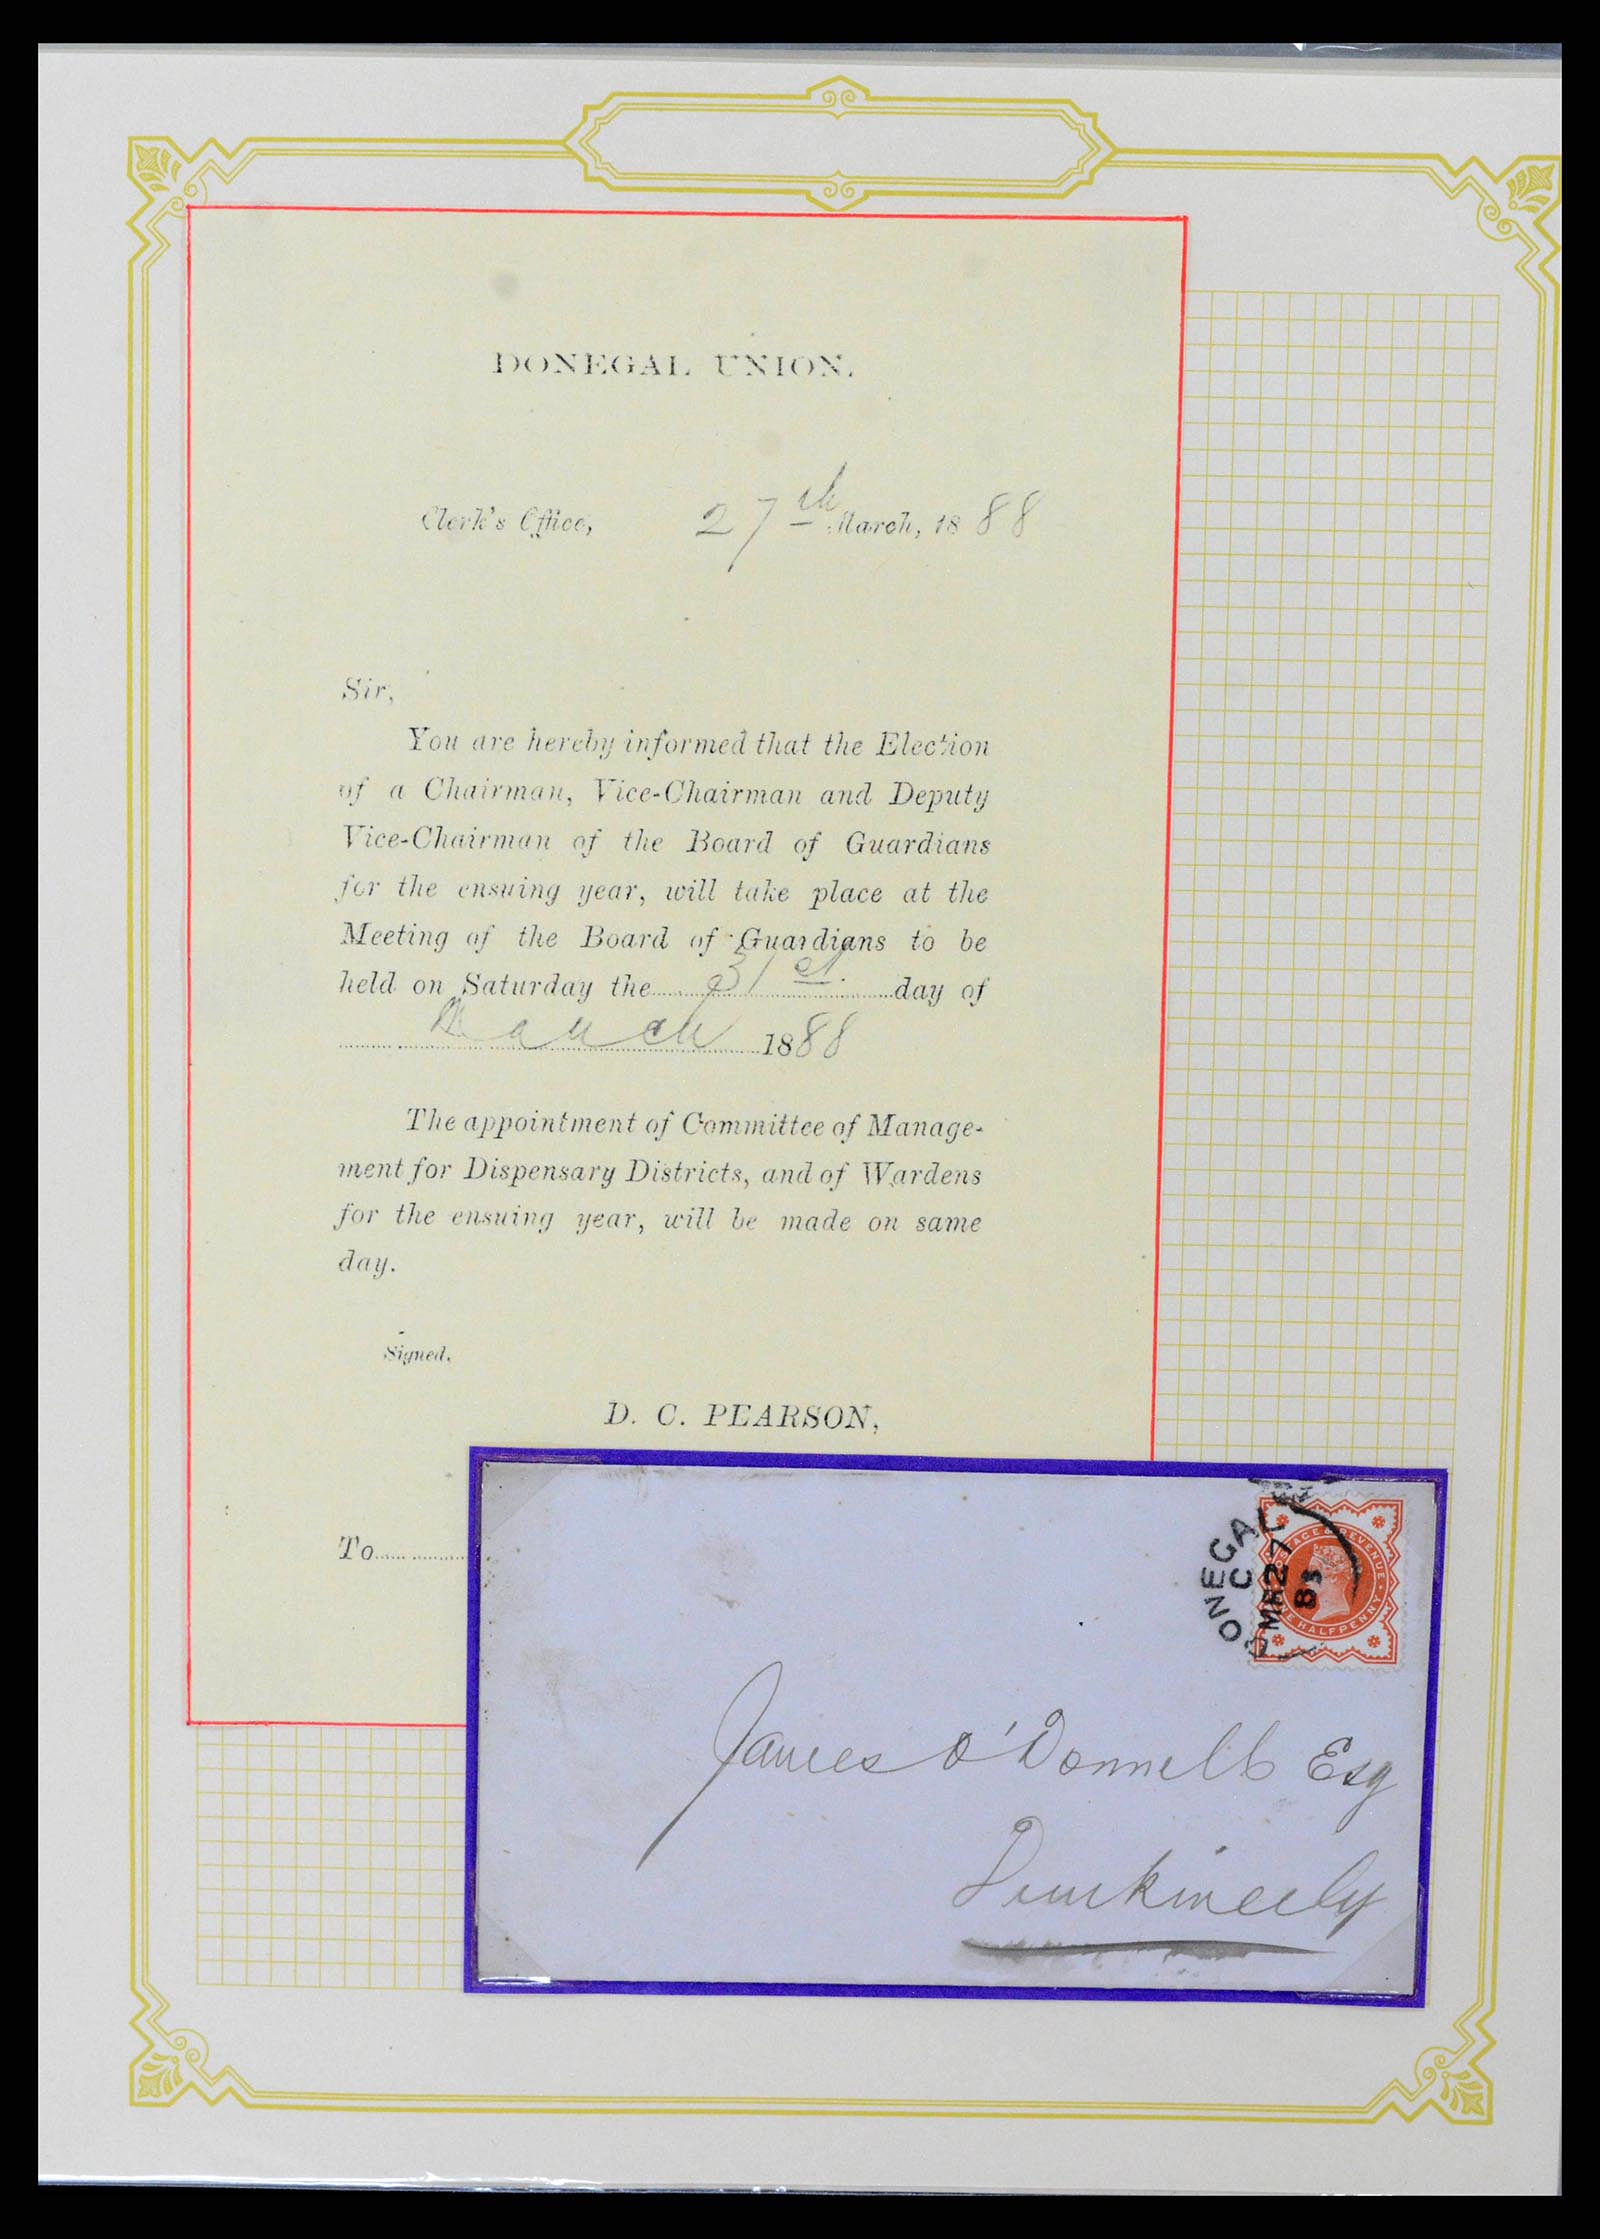 DONEGAL UNION.
Clerk's Office, 27th March, 1888
Sir,
You are hereby informed that the Election
of a Chairman, Vice-Chairman and Deputy
Vice-Chairman of the Board of Guardians
for the ensuing year, will take place at the
Meeting of the Board of Guardians to be
held on Saturday the 31st day of
March 1888
The appointment of Committee of Manage-
ment for Dispensary Districts, and of Wardens
for the ensuing year, will be made on same
day.
Signed,
D. C. PEARSON,
To
DONEGAL
C
MR 27
88
POSTAGE & REVENUE
ONE HALFPENNY
James O'Donnell Esq
Dunkineely